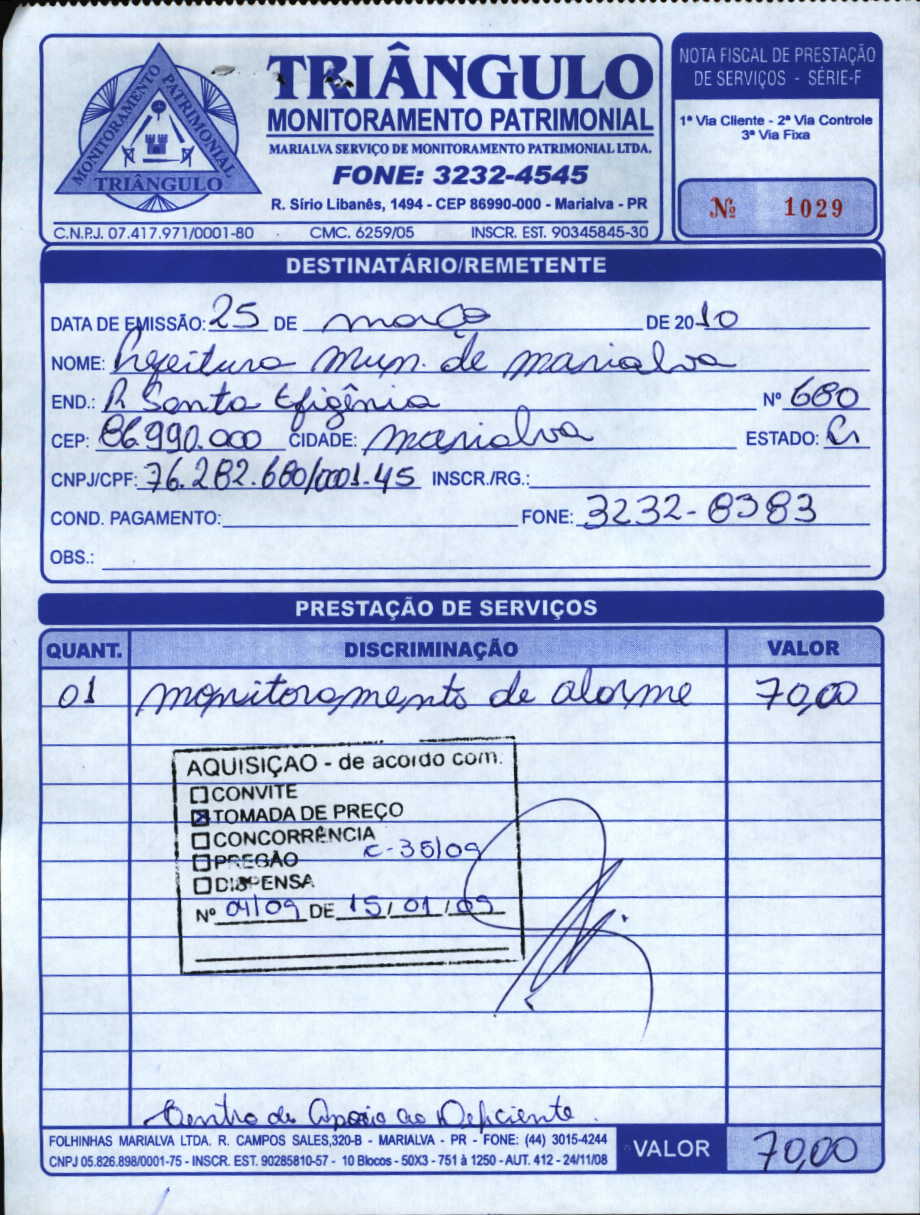 MONITORAMENTO PATRIMONIAL
TRIÂNGULO
TRIÂNGULO
MONITORAMENTO PATRIMONIAL
MARIALVA SERVIÇO DE MONITORAMENTO PATRIMONIAL LTDA.
FONE: 3232-4545
R. Sírio Libanês, 1494 - CEP 86990-000 - Marialva - PR
C.N.P.J. 07.417.971/0001-80 CMC. 6259/05 INSCR. EST. 90345845-30
NOTA FISCAL DE PRESTAÇÃO
DE SERVIÇOS - SÉRIE-F
1ª Via Cliente - 2ª Via Controle
3ª Via Fixa
Nº 1029
DESTINATÁRIO/REMETENTE
DATA DE EMISSÃO: 25 DE março DE 2010
NOME: Prefeitura Mun. de Marialva
END.: R Santa Efigênia Nº 680
CEP: 86.990.000 CIDADE: Marialva ESTADO: Pr
CNPJ/CPF: 76.282.680/0001-45 INSCR./RG.:
COND. PAGAMENTO: FONE: 3232-8383
OBS.:
PRESTAÇÃO DE SERVIÇOS
QUANT. DISCRIMINAÇÃO VALOR
01 monitoramento de alarme 70,00
AQUISIÇAO - de acordo com:
CONVITE
TOMADA DE PREÇO
CONCORRÊNCIA
PREGÃO c-35/09
DISPENSA
Nº 04/09 DE 15/01/09
Centro de Apoio ao Deficiente.
FOLHINHAS MARIALVA LTDA. R. CAMPOS SALES,320-B - MARIALVA - PR - FONE: (44) 3015-4244
CNPJ 05.826.898/0001-75 - INSCR. EST. 90285810-57 - 10 Blocos - 50X3 - 751 à 1250 - AUT. 412 - 24/11/08
VALOR 70,00